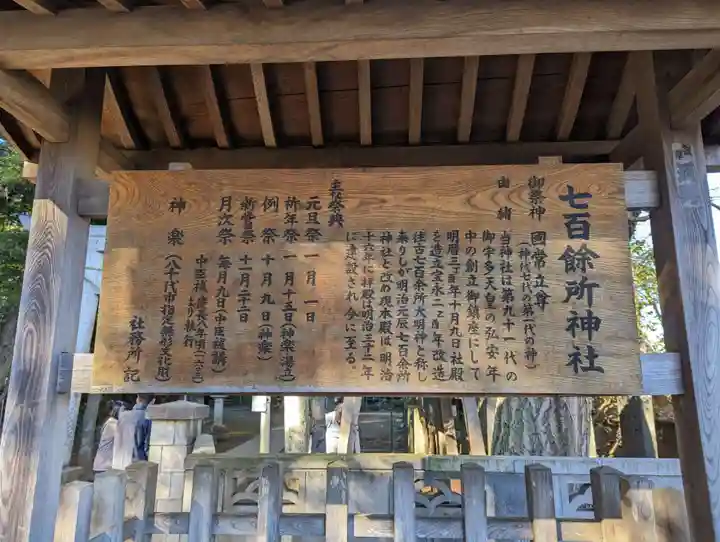 七百餘所神社
御祭神 國常立尊
(神代七代の第一代の神)
由緒 当神社は第九十一代の
御宇多天皇の弘安年
中の創立御鎮座にして
明暦三丁酉年十月九日社殿
を造立宝永二乙酉年改造
往古七百余所大明神と称し
来りしが明治元辰七百余所
神社と改め現本殿は明治
十六年に拝殿は明治三十二年
に建設され今に至る。
主祭典
元旦祭 一月一日
祈年祭 一月十五日(神楽湯立)
例祭 十月九日(神楽)
新嘗祭 十一月二十三日
月次祭 毎月九日(中臣祓講)
中臣祓 慶長八年頃(一六〇三)
より執行
神楽 (八千代市指定無形文化財)
社務所記